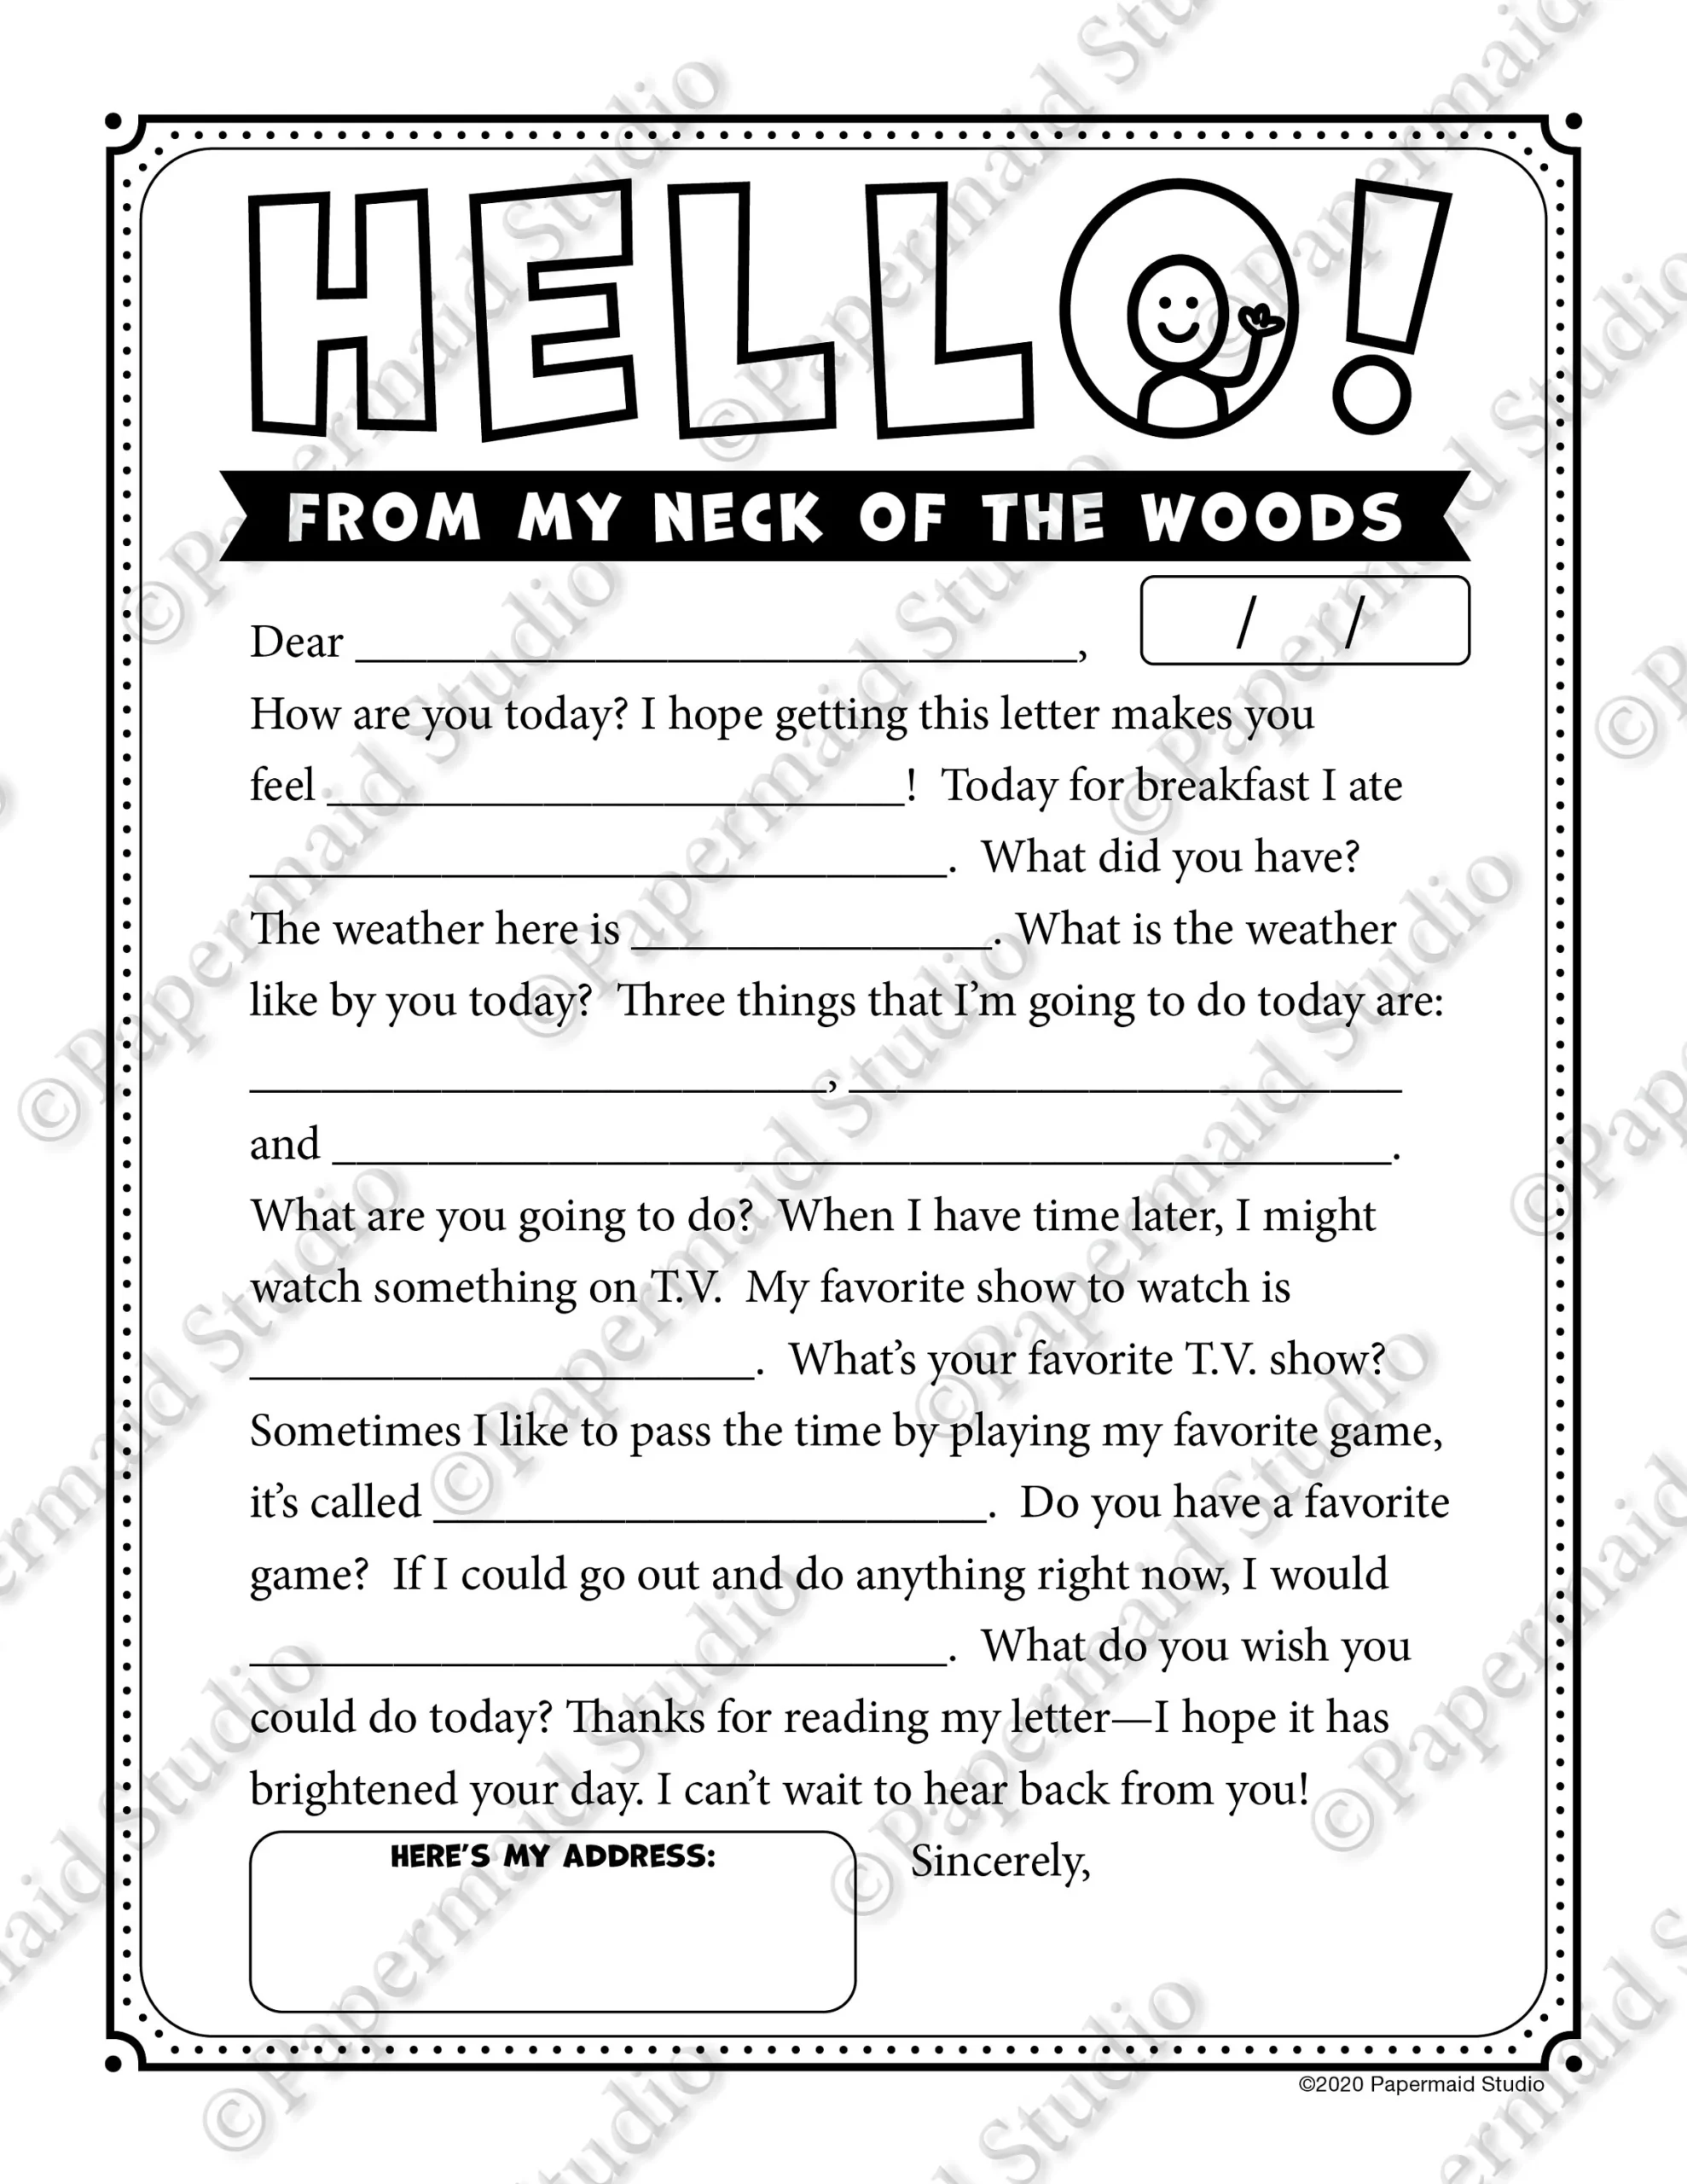 HELLO!
FROM MY NECK OF THE WOODS
/ /
Dear ______________________________,
How are you today? I hope getting this letter makes you
feel ________________________!  Today for breakfast I ate
_____________________________.  What did you have?
The weather here is _______________. What is the weather
like by you today?  Three things that I’m going to do today are:
________________________, _______________________
and ____________________________________________.
What are you going to do?  When I have time later, I might
watch something on T.V.  My favorite show to watch is
_____________________.  What’s your favorite T.V. show?
Sometimes I like to pass the time by playing my favorite game,
it’s called _______________________.  Do you have a favorite
game?  If I could go out and do anything right now, I would
_____________________________.  What do you wish you
could do today? Thanks for reading my letter—I hope it has
brightened your day. I can’t wait to hear back from you!
HERE’S MY ADDRESS:
Sincerely,
©2020 Papermaid Studio
©Papermaid Studio